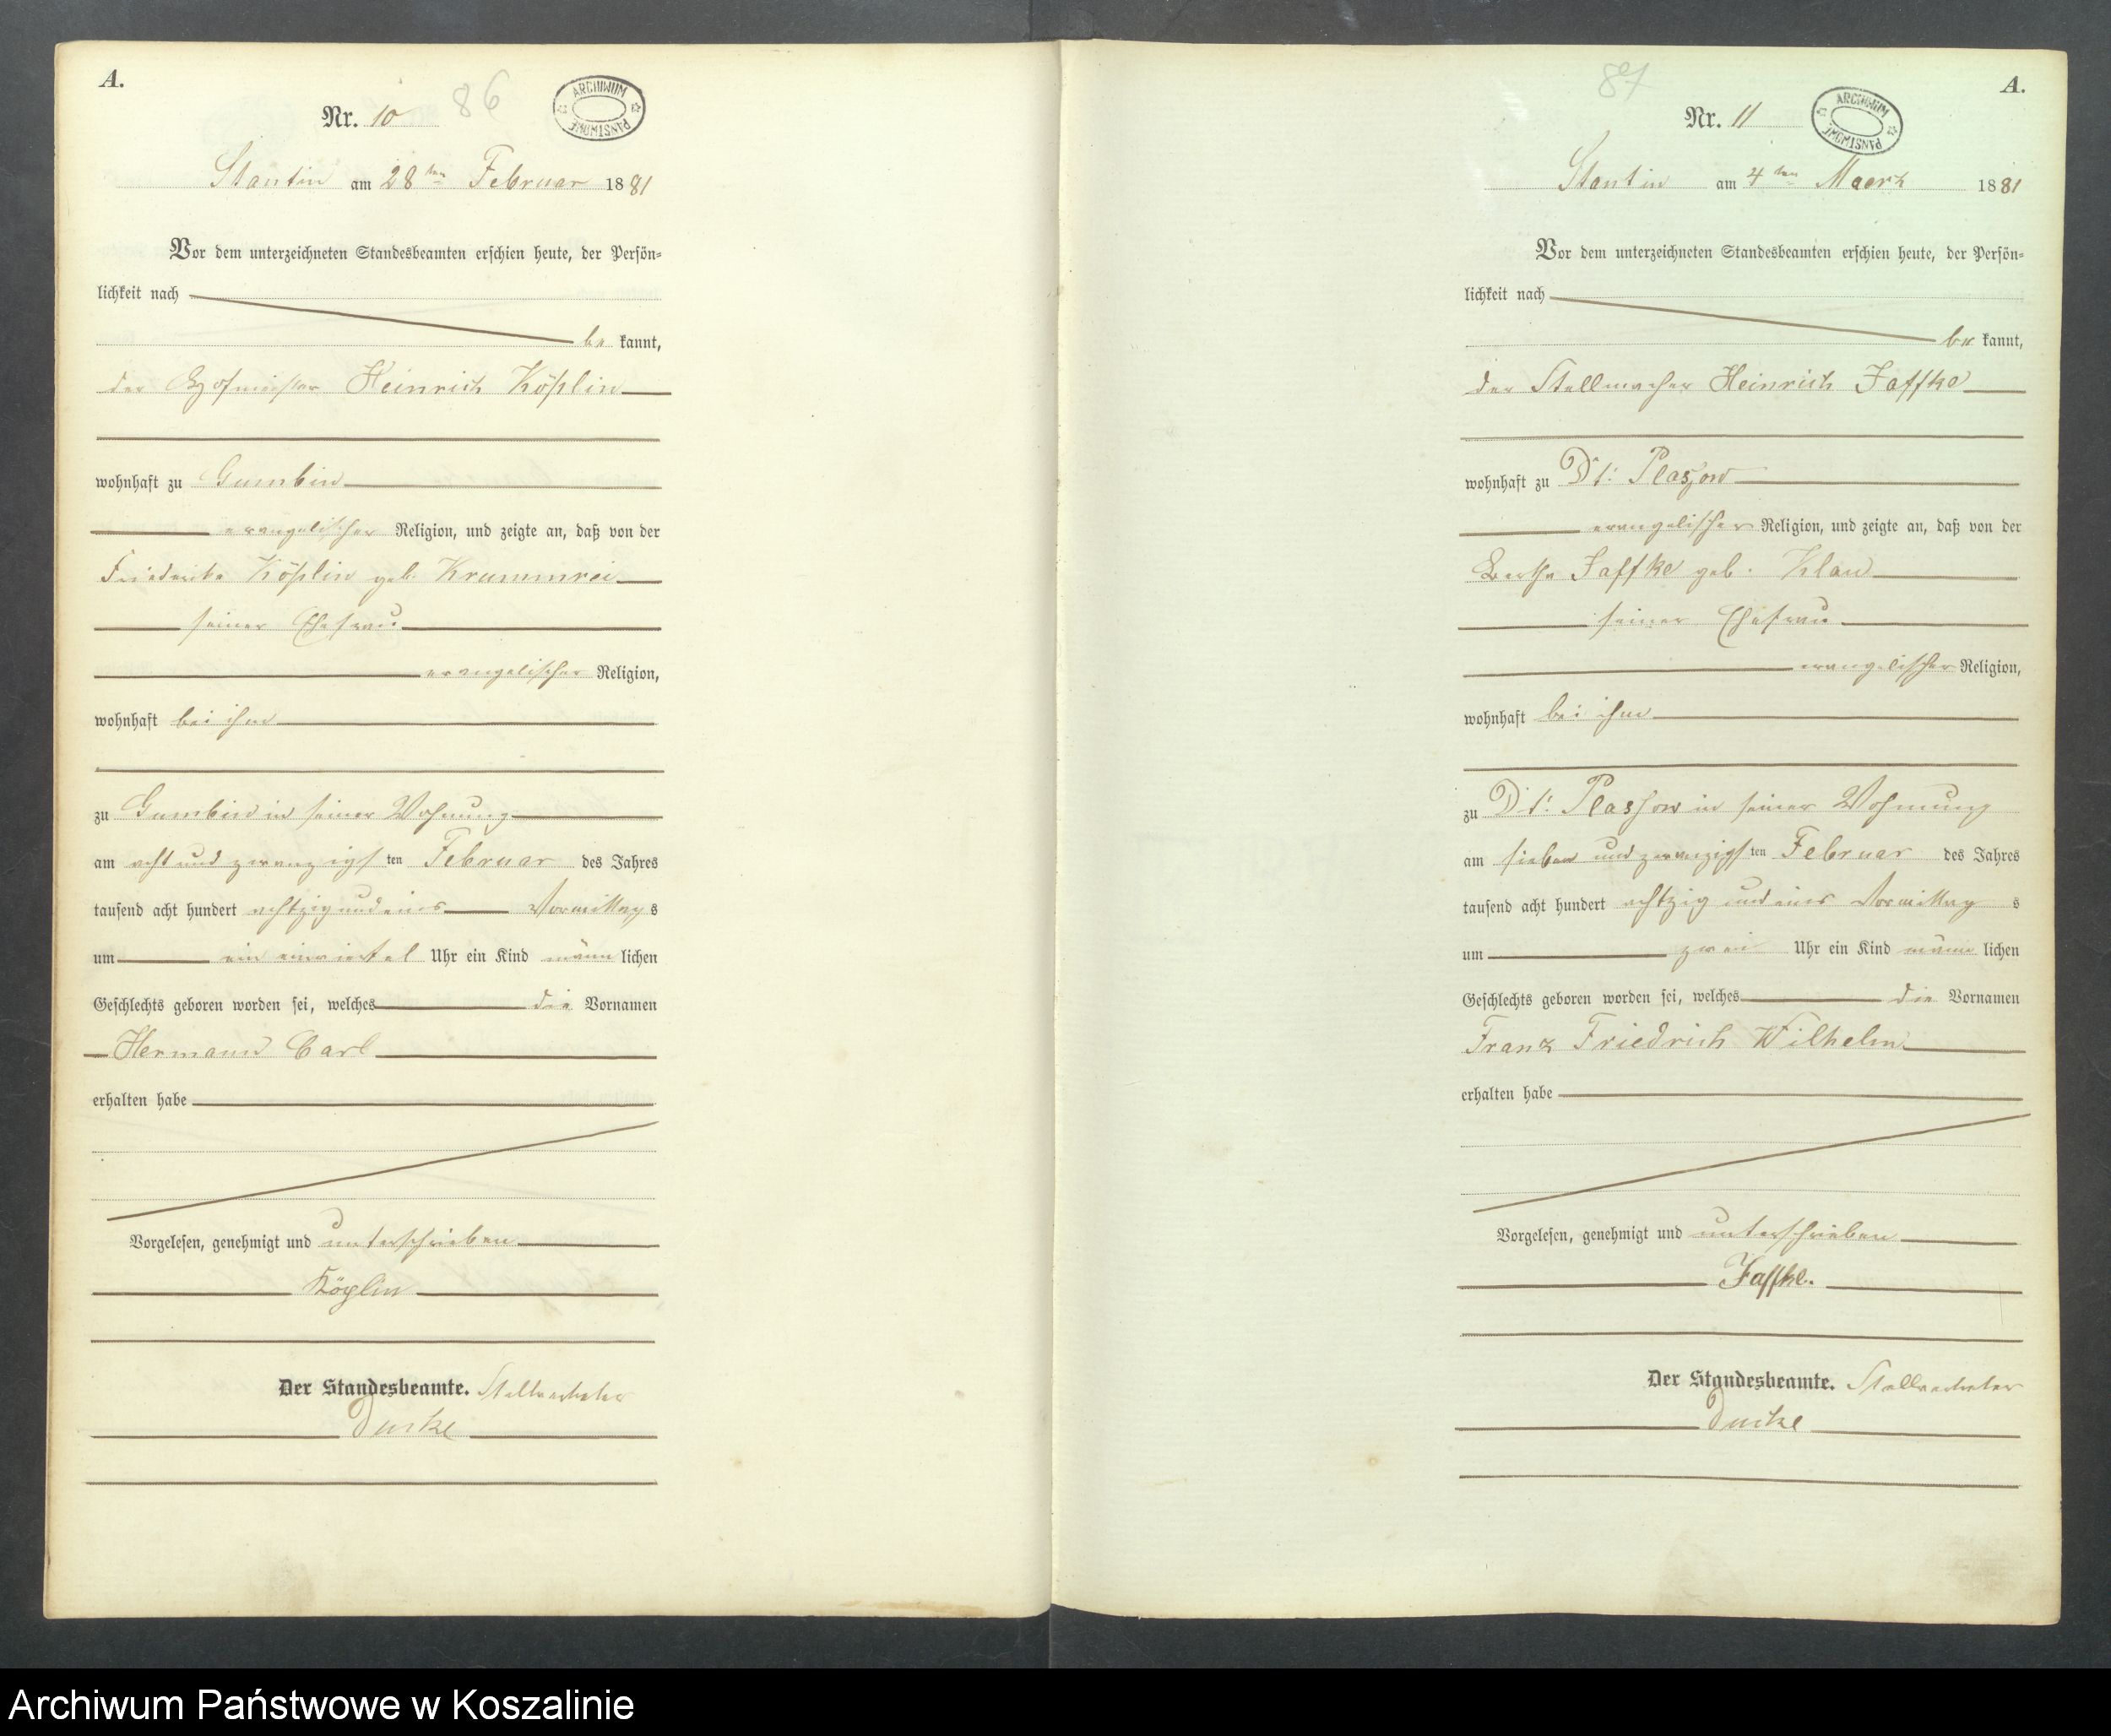 A.
Nr. 10
86
ARCHIWUM PAŃSTWOWE
Stantin am 28ten Februar 1881
Vor dem unterzeichneten Standesbeamten erschien heute, der Persön-
lichkeit nach
be kannt,
der Hofmeister Heinrich Köplin
wohnhaft zu Gumbin
evangelischer Religion, und zeigte an, daß von der
Friederike Köplin geb. Krummrei
seiner Ehefrau
evangelischer Religion,
wohnhaft bei ihm
zu Gumbin in seiner Wohnung
am acht und zwanzigsten Februar des Jahres
tausend acht hundert achtzig und eins Vormittags
um ein einviertel Uhr ein Kind männlichen
Geschlechts geboren worden sei, welches die Vornamen
Hermann Carl
erhalten habe
Vorgelesen, genehmigt und unterschrieben
Köplin
Der Standesbeamte. Stellvertreter
A.
Nr. 11
87
ARCHIWUM PAŃSTWOWE
Stantin am 4ten Maerz 1881
Vor dem unterzeichneten Standesbeamten erschien heute, der Persön-
lichkeit nach
be kannt,
der Stellmacher Heinrich Jaffke
wohnhaft zu Dt: Plassow
evangelischer Religion, und zeigte an, daß von der
Bertha Jaffke geb. Klan
seiner Ehefrau
evangelischer Religion,
wohnhaft bei ihm
zu Dt: Plassow in seiner Wohnung
am sieben und zwanzigsten Februar des Jahres
tausend acht hundert achtzig und eins Vormittags
um zwei Uhr ein Kind männlichen
Geschlechts geboren worden sei, welches die Vornamen
Franz Friedrich Wilhelm
erhalten habe
Vorgelesen, genehmigt und unterschrieben
Jaffke.
Der Standesbeamte. Stellvertreter
Archiwum Państwowe w Koszalinie